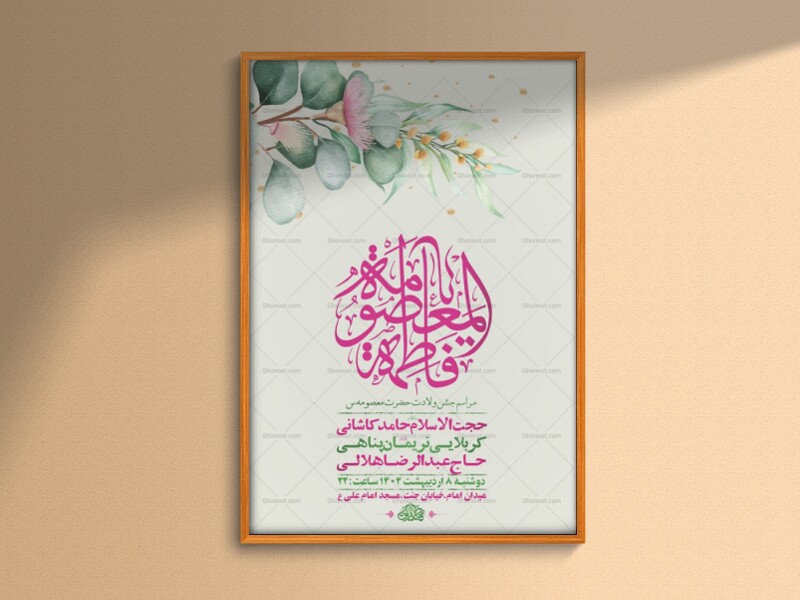 یا فاطمة المعصومة
مراسم جشن ولادت حضرت معصومه س
حجت الاسلام حامد کاشانی
کربلایی نریمان پناهی
حاج عبدالرضا هلالی
دوشنبه ۸ اردیبهشت ۱۴۰۴ ساعت: ۲۲
میدان امام، خیابان جنت، مسجد امام علی ع
Ghonoot.com